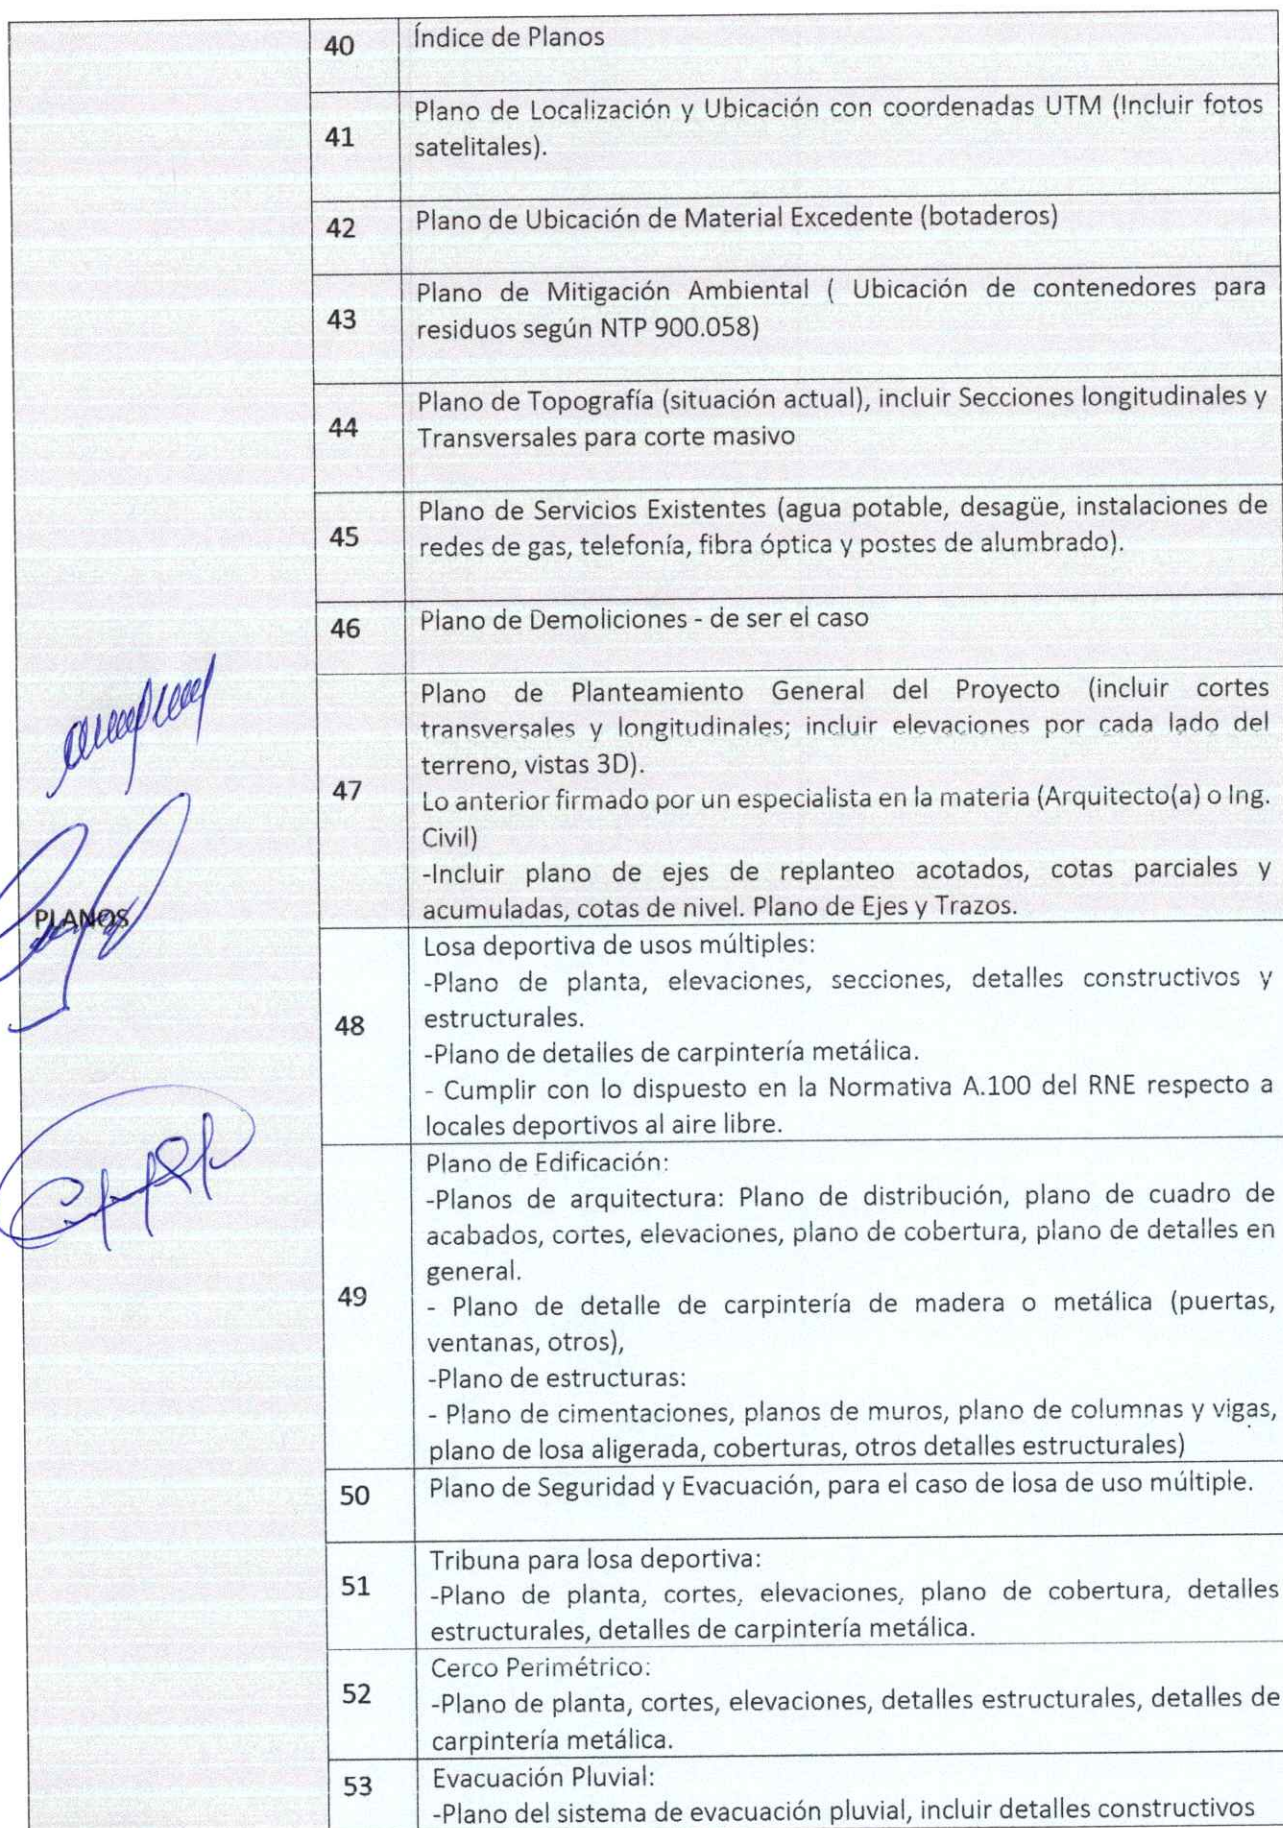 40 Índice de Planos
41 Plano de Localización y Ubicación con coordenadas UTM (Incluir fotos
satelitales).
42 Plano de Ubicación de Material Excedente (botaderos)
43 Plano de Mitigación Ambiental ( Ubicación de contenedores para
residuos según NTP 900.058)
44 Plano de Topografía (situación actual), incluir Secciones longitudinales y
Transversales para corte masivo
45 Plano de Servicios Existentes (agua potable, desagüe, instalaciones de
redes de gas, telefonía, fibra óptica y postes de alumbrado).
46 Plano de Demoliciones - de ser el caso
47 Plano de Planteamiento General del Proyecto (incluir cortes
transversales y longitudinales; incluir elevaciones por cada lado del
terreno, vistas 3D).
Lo anterior firmado por un especialista en la materia (Arquitecto(a) o Ing.
Civil)
-Incluir plano de ejes de replanteo acotados, cotas parciales y
acumuladas, cotas de nivel. Plano de Ejes y Trazos.
PLANOS
48 Losa deportiva de usos múltiples:
-Plano de planta, elevaciones, secciones, detalles constructivos y
estructurales.
-Plano de detalles de carpintería metálica.
- Cumplir con lo dispuesto en la Normativa A.100 del RNE respecto a
locales deportivos al aire libre.
49 Plano de Edificación:
-Planos de arquitectura: Plano de distribución, plano de cuadro de
acabados, cortes, elevaciones, plano de cobertura, plano de detalles en
general.
- Plano de detalle de carpintería de madera o metálica (puertas,
ventanas, otros),
-Plano de estructuras:
- Plano de cimentaciones, planos de muros, plano de columnas y vigas,
plano de losa aligerada, coberturas, otros detalles estructurales)
50 Plano de Seguridad y Evacuación, para el caso de losa de uso múltiple.
51 Tribuna para losa deportiva:
-Plano de planta, cortes, elevaciones, plano de cobertura, detalles
estructurales, detalles de carpintería metálica.
52 Cerco Perimétrico:
-Plano de planta, cortes, elevaciones, detalles estructurales, detalles de
carpintería metálica.
53 Evacuación Pluvial:
-Plano del sistema de evacuación pluvial, incluir detalles constructivos